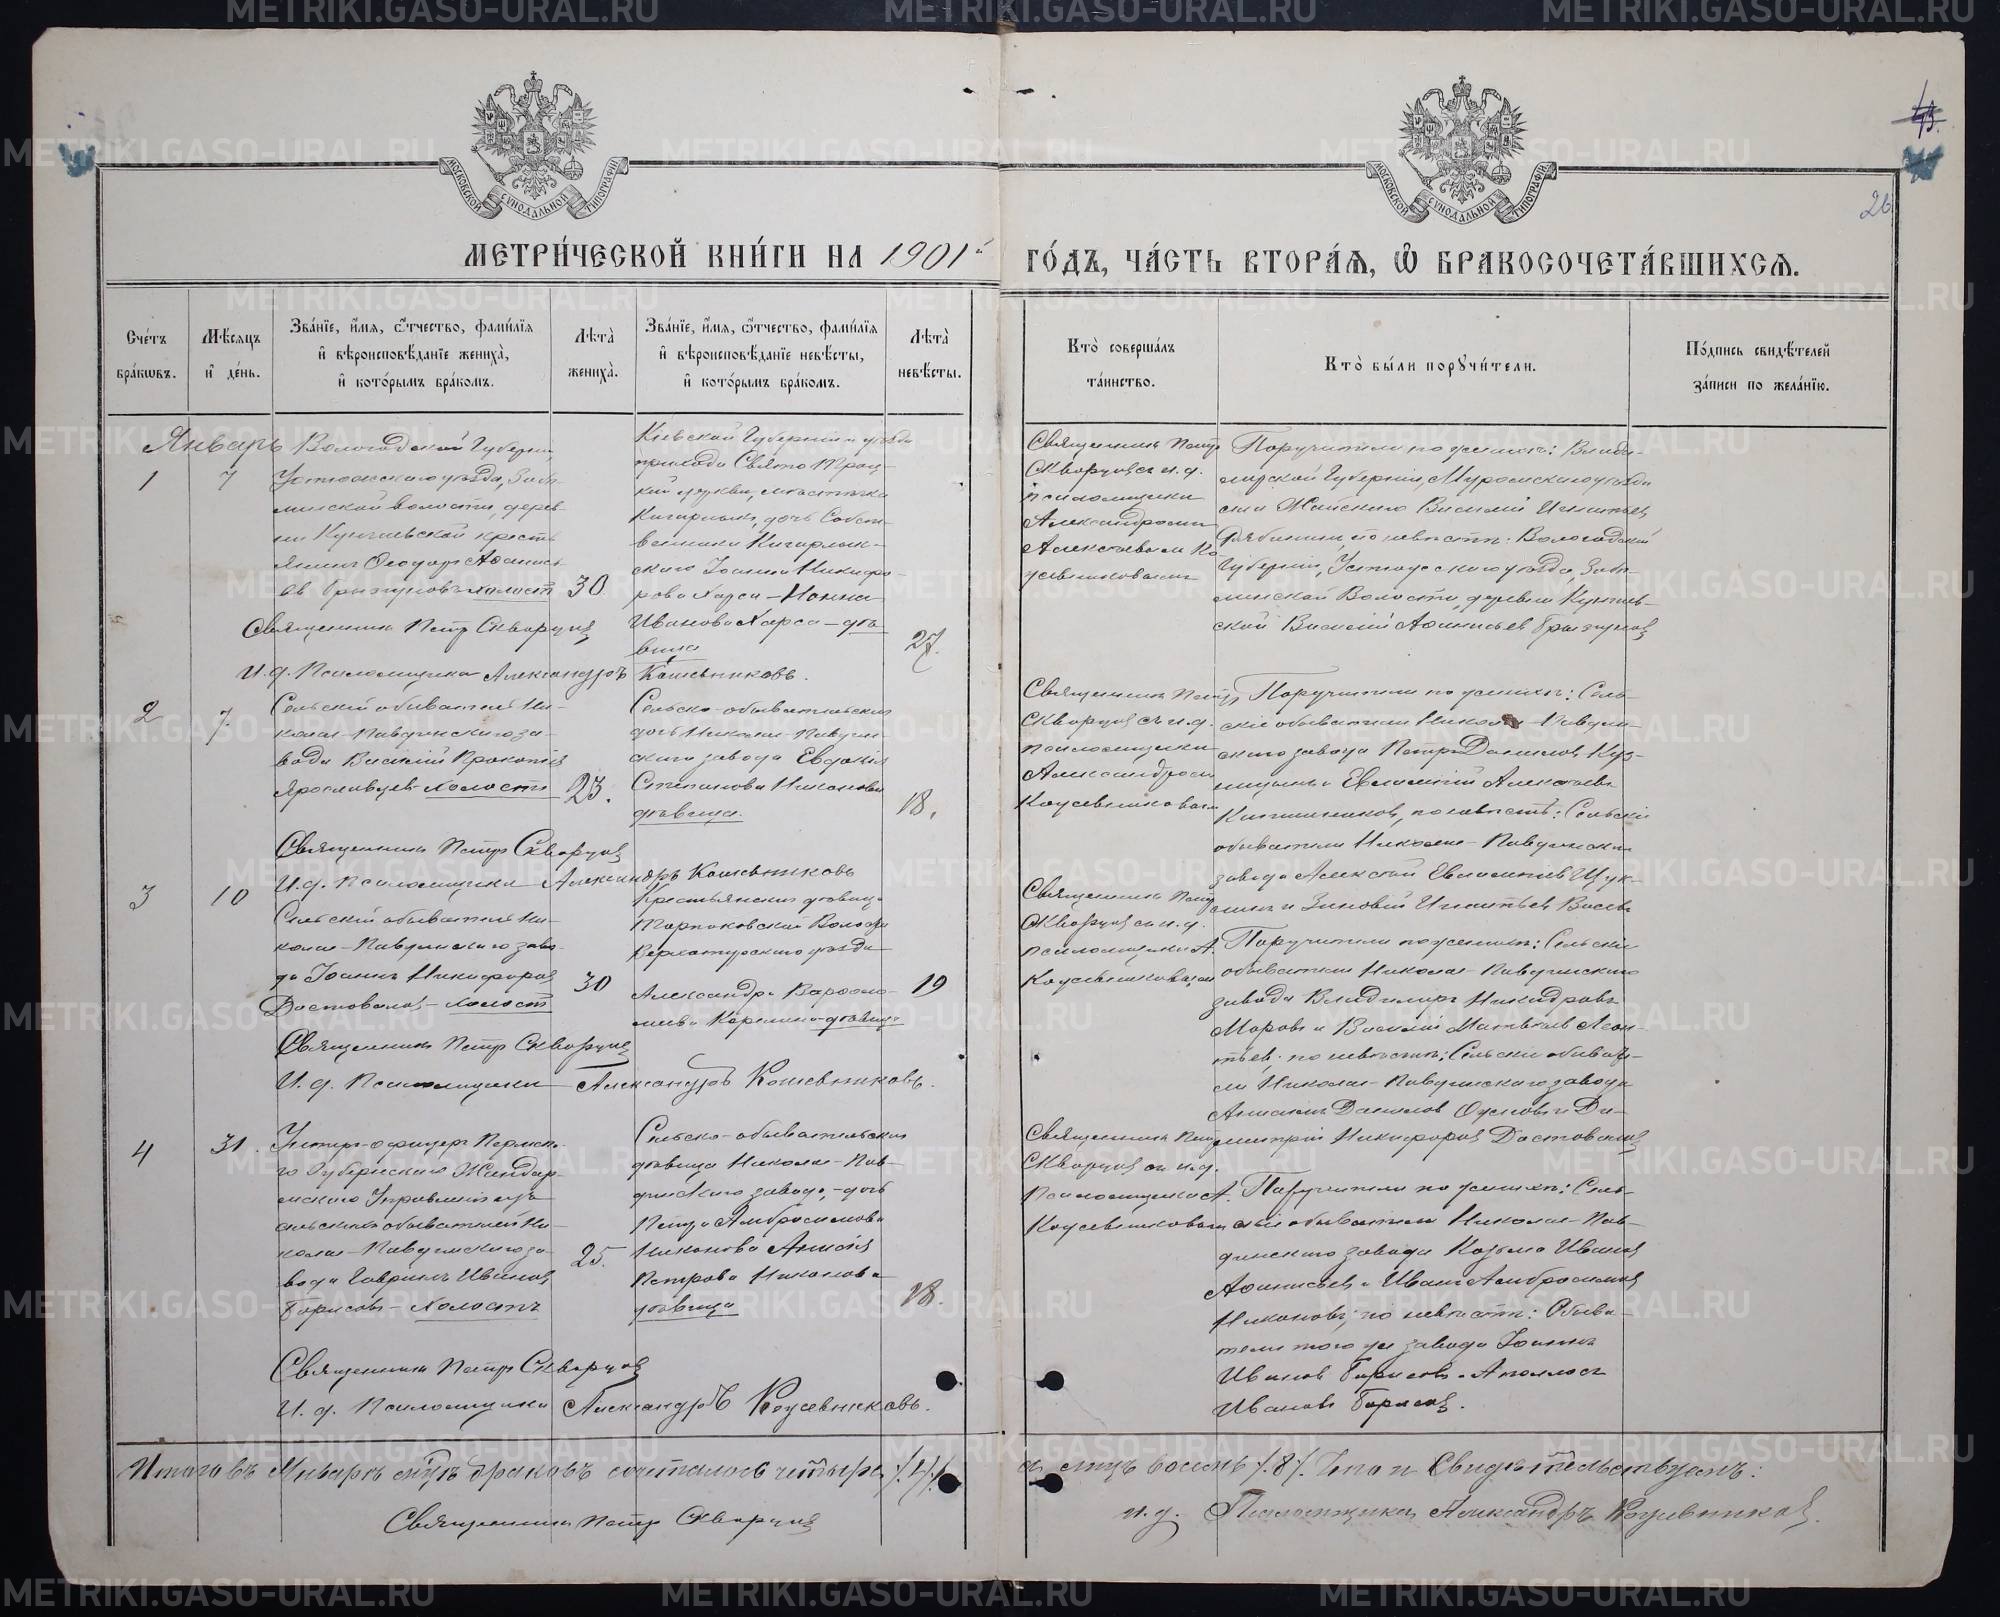 МЕТРИ́ЧЕСКОЙ КНИ́ГИ НА 1901й ГО́ДЪ, ЧА́СТЬ ВТОРА́Я, Ѽ БРАКОСОЧЕТА́ВШИХСЯ.
МОСКОВСКОЙ СѴНОДАЛЬНОЙ ТИПОГРАФІИ
МОСКОВСКОЙ СѴНОДАЛЬНОЙ ТИПОГРАФІИ
26
Счетъ браковъ.
Мѣсяцъ и день.
Званіе, имя, отчество, фамилія
и вѣроисповѣданіе жениха,
и которымъ бракомъ.
Лѣта жениха.
Званіе, имя, отчество, фамилія
и вѣроисповѣданіе невѣсты,
и которымъ бракомъ.
Лѣта невѣсты.
Кто совершалъ
таинство.
Кто были поручители.
Подпись свидѣтелей
записи по желанію.
Январь
1
7
Вологодской Губерніи
Устюжскаго уѣзда,
волости, дерев-
ни
крестья-
янинъ Ѳеодоръ Аѳанась-
евъ холостъ
30.
Кіевской Губерніи и уѣзда
прихода Свято Трои-
цкой церкви, мѣстечка
Кагарлыка, дочь Собст-
венника Кагарлык-
скаго Іоанна Никифо-
рова
Иванова дѣ-
вица
27.
Священникъ Петръ
Скварцовъ и. д.
псаломщика
Александромъ
Алексѣевымъ Ко-
жевниковымъ
Поручители по женихѣ: Влади-
мірской Губерніи, Муромскаго уѣзда
Василій Игнатьевъ
по невѣстѣ: Вологодской
Губерніи, Устюжскаго уѣзда,
Волости, деревни
Василій Аѳанасьевъ
Священникъ Петръ Скварцовъ
И. д. Псаломщика Александръ Кожевниковъ.
2
7.
Сельскій обыватель Ни-
колае-Павдинскаго за-
вода Василій Прокопіевъ
Ярославцевъ-холостъ
23.
Сельско-обывательская
дочь Николае-Павдин-
скаго завода Евдокія
Степанова Никонова
дѣвица.
18.
Священникъ Петръ
Скварцовъ съ и. д.
псаломщика
Александромъ
Кожевниковымъ
Поручители по женихѣ: Сель-
скіе обыватели Николае-Павдин-
скаго завода Петръ Даниловъ Куз-
и Алексѣевъ
по невѣстѣ: Сельскіе
обыватели Николае-Павдинскаго
завода Алексѣй
и Зиновій Игнатьевъ
Священникъ Петръ Скварцовъ
И. д. Псаломщика Александръ Кожевниковъ
3
10
Сельскій обыватель Ни-
колае-Павдинскаго заво-
да Іоаннъ Никифоровъ
Достоваловъ-холостъ
30
Крестьянская дѣвица
Волости
Верхотурскаго уѣзда
Александра Варѳоло-
меева Карелина-дѣвица
19
Священникъ Петръ
Скварцовъ съ и. д.
псаломщика А.
Кожевниковымъ
Поручители по женихѣ: Сельскіе
обыватели Николае-Павдинскаго
завода Владиміръ Никандровъ
и Василій Матвѣевъ Леон-
тьевъ; по невѣстѣ: Сельскіе обывате-
ли Николае-Павдинскаго завода
Даниловъ и Ди-
митрій Никифоровъ Достоваловъ
Священникъ Петръ Скварцовъ
И. д. Псаломщика Александръ Кожевниковъ.
4
31.
Унтеръ-офицеръ Пермска-
го Губернскаго Жандар-
мскаго Управленія изъ
сельскихъ обывателей Ни-
колае-Павдинскаго за-
вода Гавріилъ Ивановъ
Борисовъ-Холостъ
25.
Сельско-обывательская
дѣвица Николае-Пав-
динскаго завода,-дочь
Петра Амбросимова
Никонова Анисія
Петрова Никонова
дѣвица
18.
Священникъ Петръ
Скварцовъ съ и. д.
Псаломщика А.
Кожевниковымъ
Поручители по женихѣ: Сель-
скіе обыватели Николае-Пав-
динскаго завода Козьма Ивановъ
Аѳанасьевъ и Иванъ Амбросимовъ
Никоновъ; по невѣстѣ: Обыва-
тели того же завода Іоаннъ
Ивановъ Борисовъ и Аполлосъ
Ивановъ Борисовъ.
Священникъ Петръ Скварцовъ
И. д. Псаломщика Александръ Кожевниковъ.
Итого въ Январѣ мцѣ браковъ сочеталось четыре /.4/. а лицъ восемь /.8/. Что и Свидѣтельствуемъ:
Священникъ Петръ Скварцовъ
и. д. Псаломщика Александръ Кожевниковъ.
METRIKI.GASO-URAL.RU